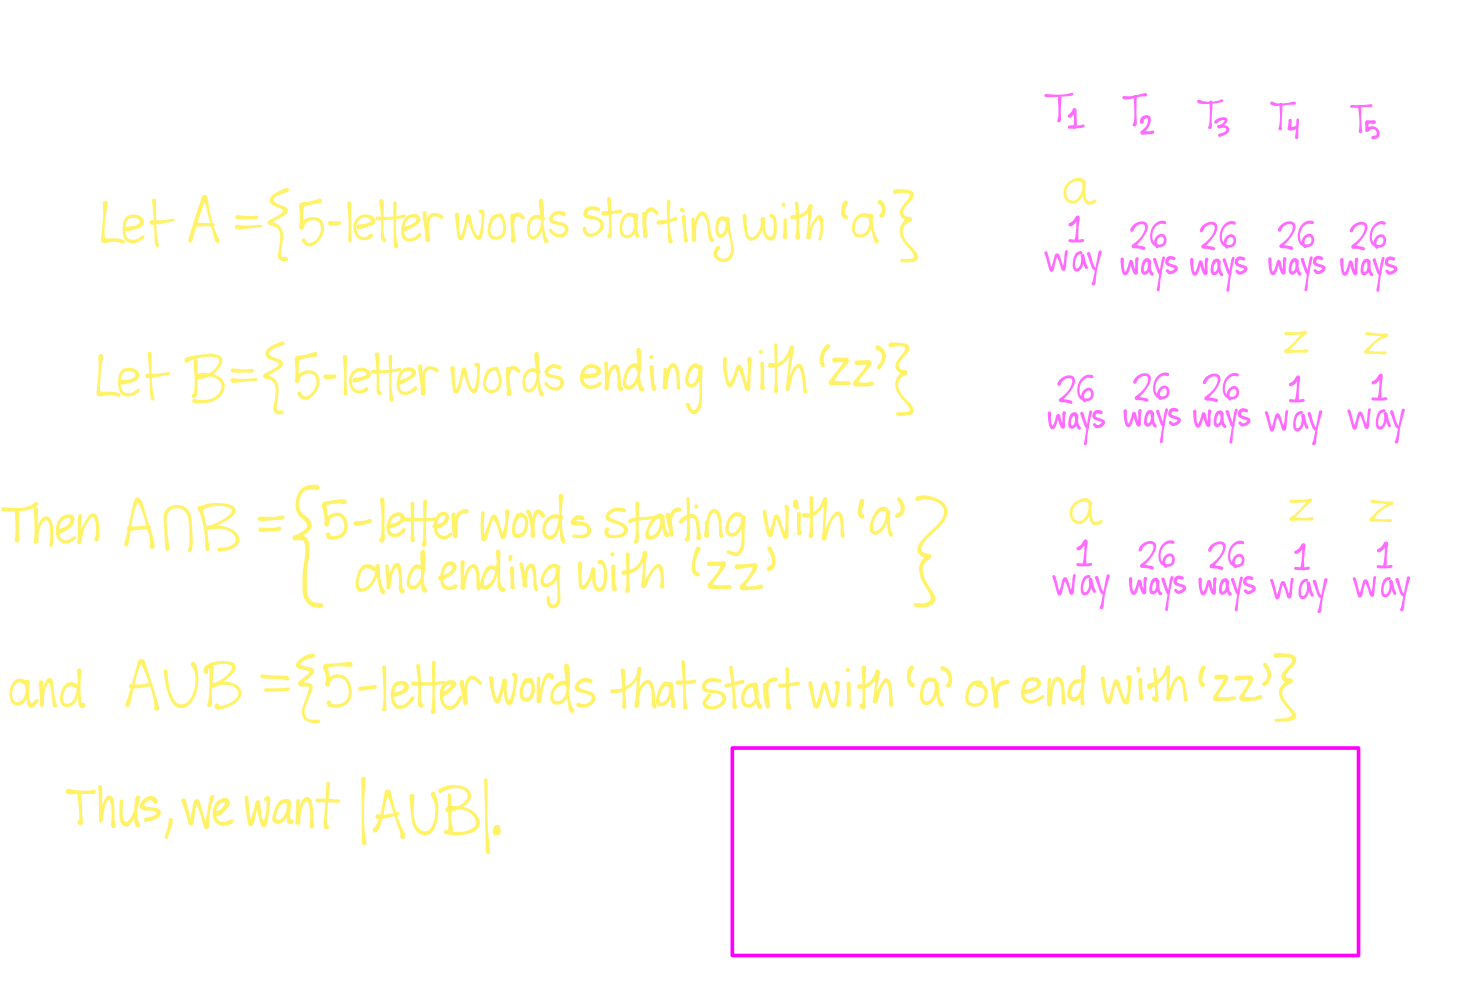 T1 T2 T3 T4 T5
Let A = {5-letter words starting with 'a'}
a
1 way 26 ways 26 ways 26 ways 26 ways
Let B = {5-letter words ending with 'zz'}
z z
26 ways 26 ways 26 ways 1 way 1 way
Then A∩B = {5-letter words starting with 'a'
and ending with 'zz'}
a z z
1 way 26 ways 26 ways 1 way 1 way
and A∪B = {5-letter words that start with 'a' or end with 'zz'}
Thus, we want |A∪B|.